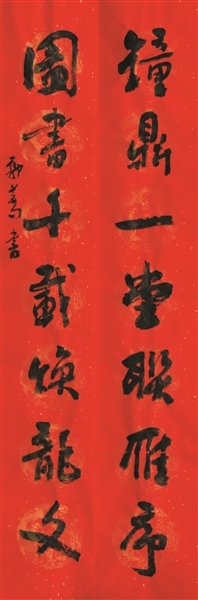 鐘鼎一堂聯雁序
圖書千載煥龍文